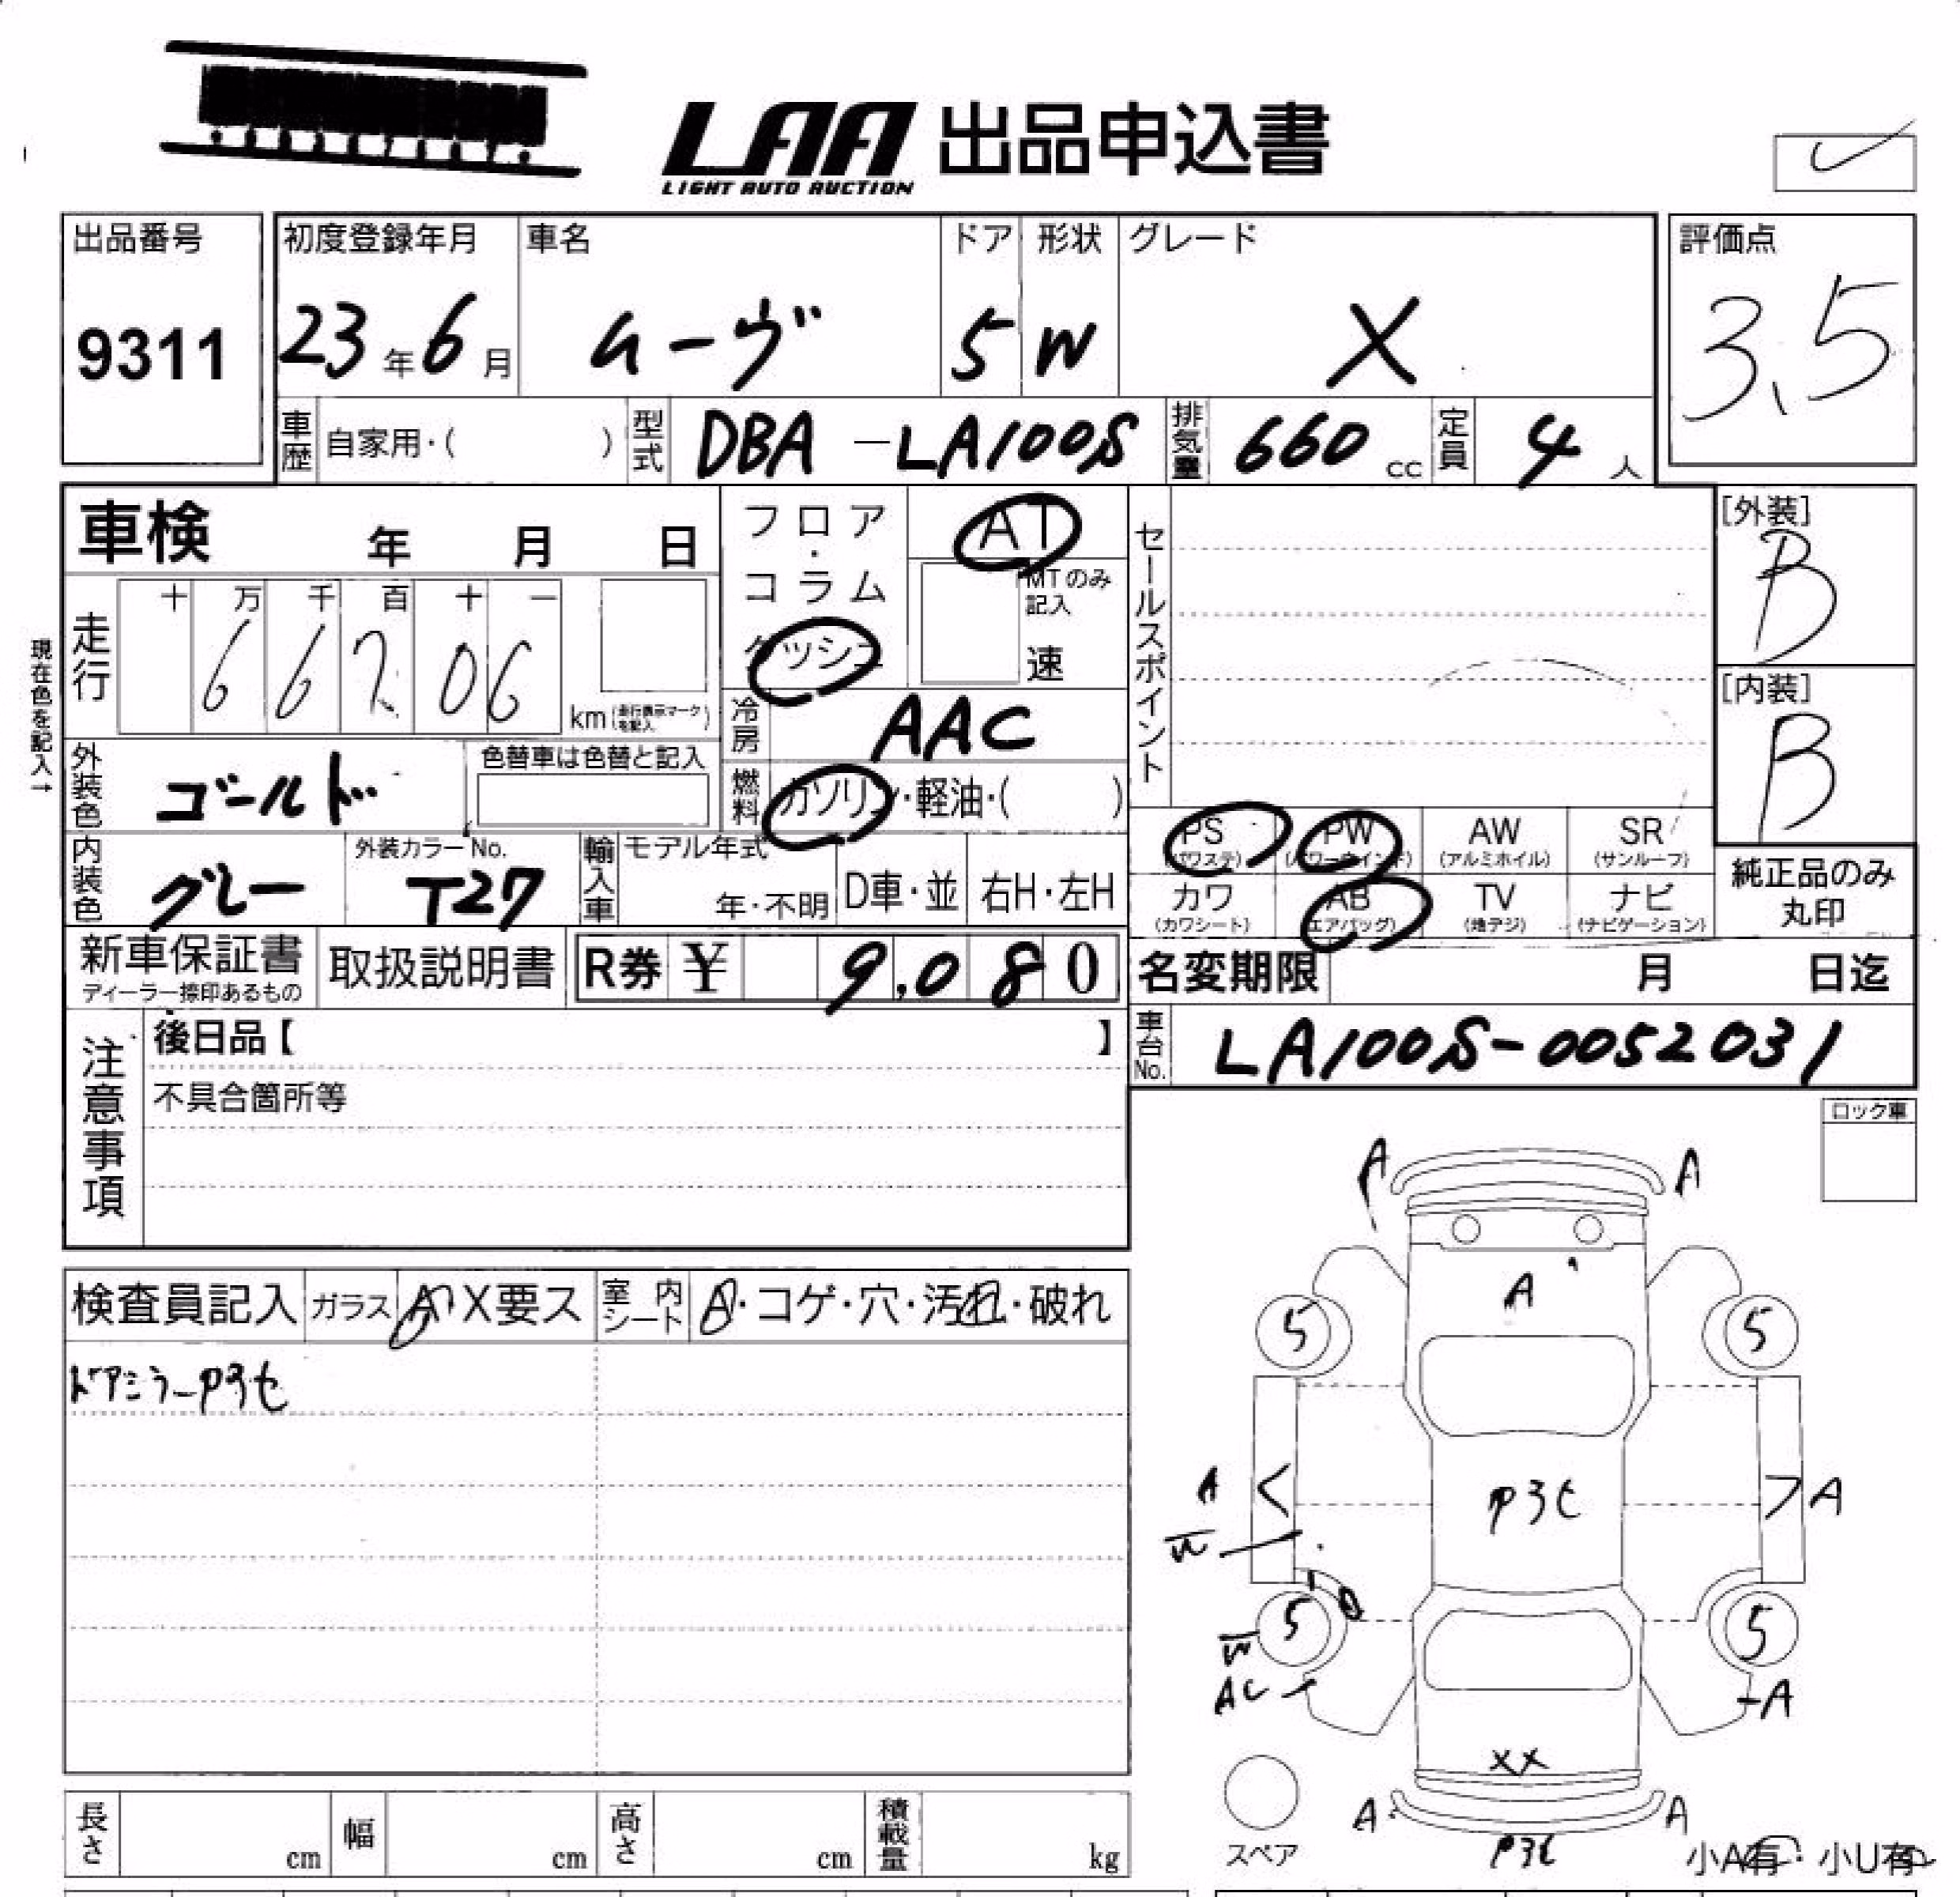 LAA 出品申込書
LIGHT AUTO AUCTION
出品番号
9311
初度登録年月
23年6月
車名
ムーヴ
ドア
5
形状
W
グレード
X
評価点
3.5
車歴 自家用・( )
型式 DBA-LA100S
排気量 660 cc
定員 4 人
車検 年 月 日
フロア・コラム
ダッシュ
AT
MTのみ記入
速
セールスポイント
[外装]
B
[内装]
B
現在色を記入→
走行
十 万 千 百 十 一
6 6 7 0 6
km (走行表示マークを記入)
冷房 AAC
外装色 ゴールド
色替車は色替と記入
燃料 ガソリン・軽油・( )
内装色 グレー
外装カラーNo.
T27
輸入車 モデル年式
年・不明
D車・並
右H・左H
PS (パワステ)
PW (パワーウインド)
AW (アルミホイル)
SR (サンルーフ)
カワ (カワシート)
AB (エアバッグ)
TV (地デジ)
ナビ (ナビゲーション)
純正品のみ
丸印
新車保証書
ディーラー捺印あるもの
取扱説明書
R券 ¥ 9,080
名変期限 月 日迄
注意事項
後日品【 】
不具合箇所等
車台No. LA100S-0052031
ロック車
検査員記入
ガラス A X要ス
室内シート A・コゲ・穴・汚れ・破れ
ドアミラーP3t
A A
A
5 5
A < P3t > A
W
5 5
W
AC -A
XX
A A
P3t
スペア
小A有・小U有
長さ cm
幅 cm
高さ cm
積載量 kg